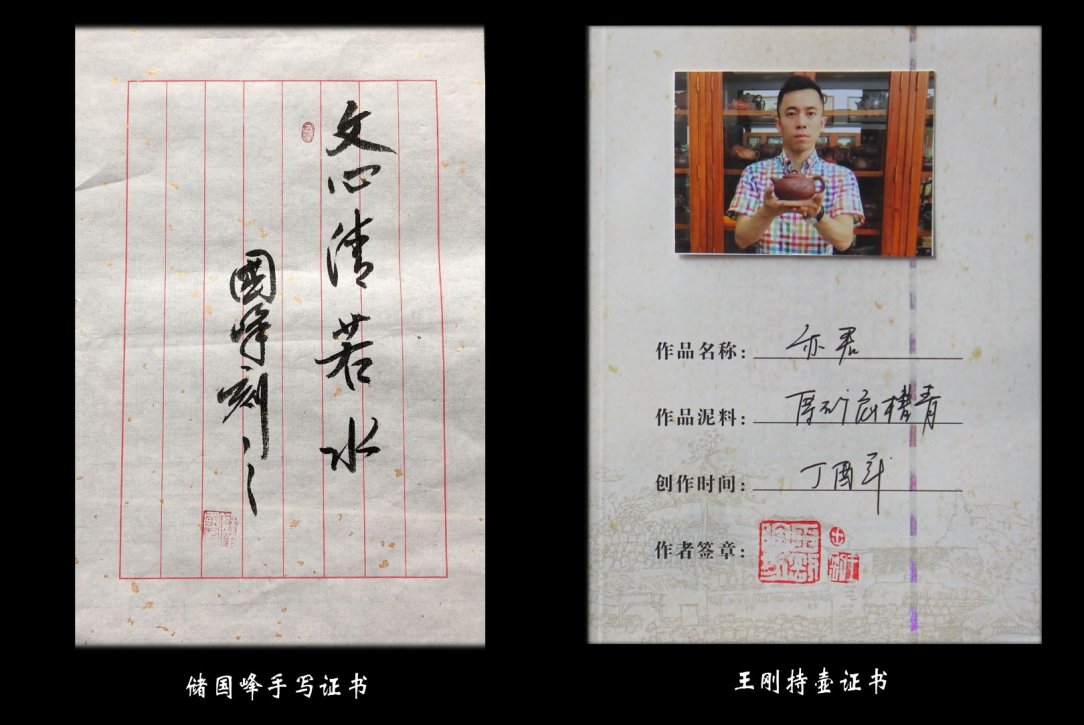 文心清若水
國峰刻之
储国峰手写证书
作品名称：亦君
作品泥料：原矿底槽青
创作时间：丁酉年
作者签章：
王刚持壶证书